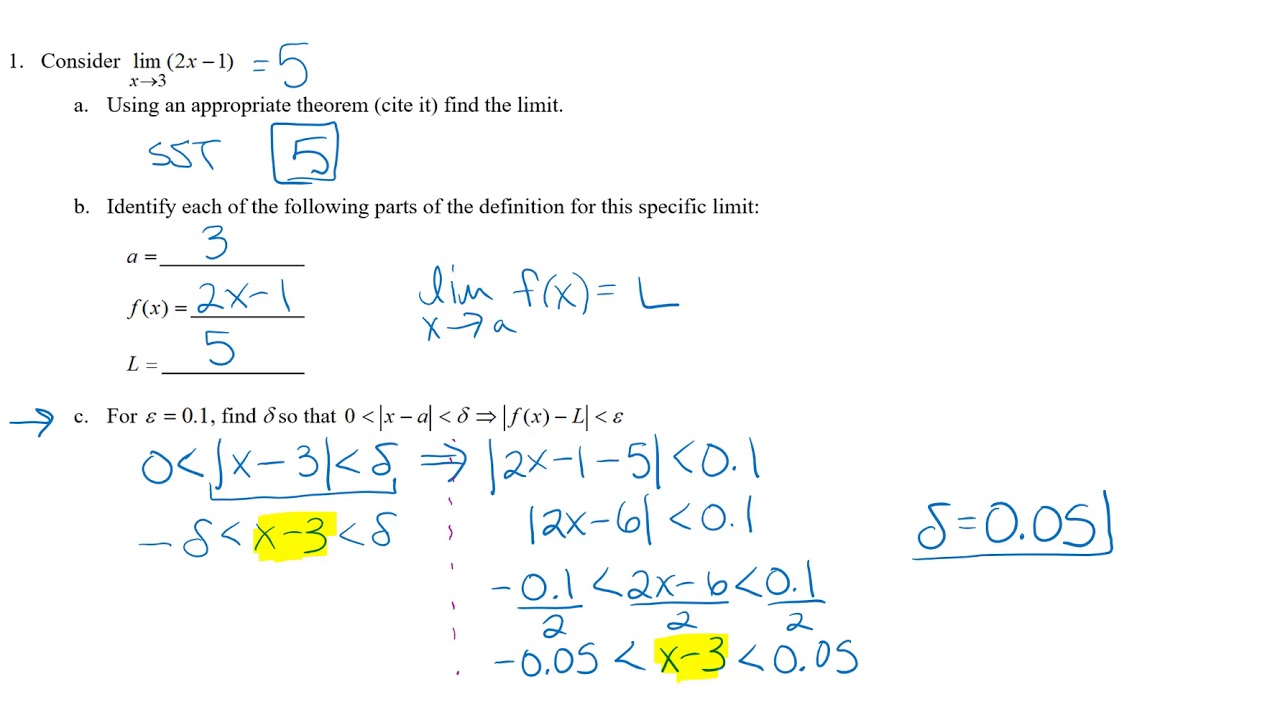 1. Consider lim x→3 (2x − 1) = 5
a. Using an appropriate theorem (cite it) find the limit.
SST 5
b. Identify each of the following parts of the definition for this specific limit:
a = 3
f(x) = 2x-1
lim x→a f(x) = L
L = 5
→ c. For ε = 0.1, find δ so that 0 < |x − a| < δ ⇒ |f(x) − L| < ε
0 < |x-3| < δ ⇒ |2x-1-5| < 0.1
-δ < x-3 < δ
|2x-6| < 0.1
δ = 0.05
-0.1/2 < 2x-6/2 < 0.1/2
-0.05 < x-3 < 0.05